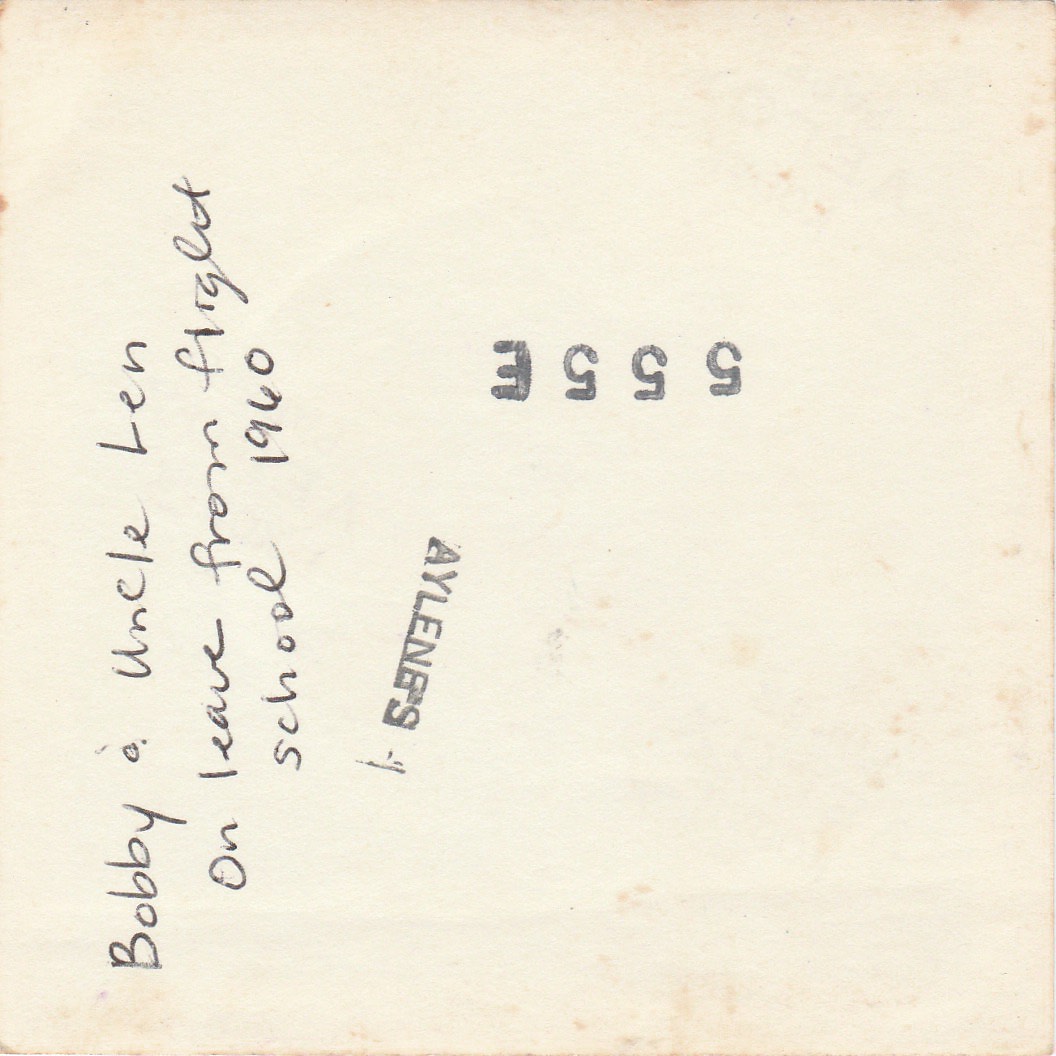 Bobby & Uncle Len
On leave from flight
school 1960
555E